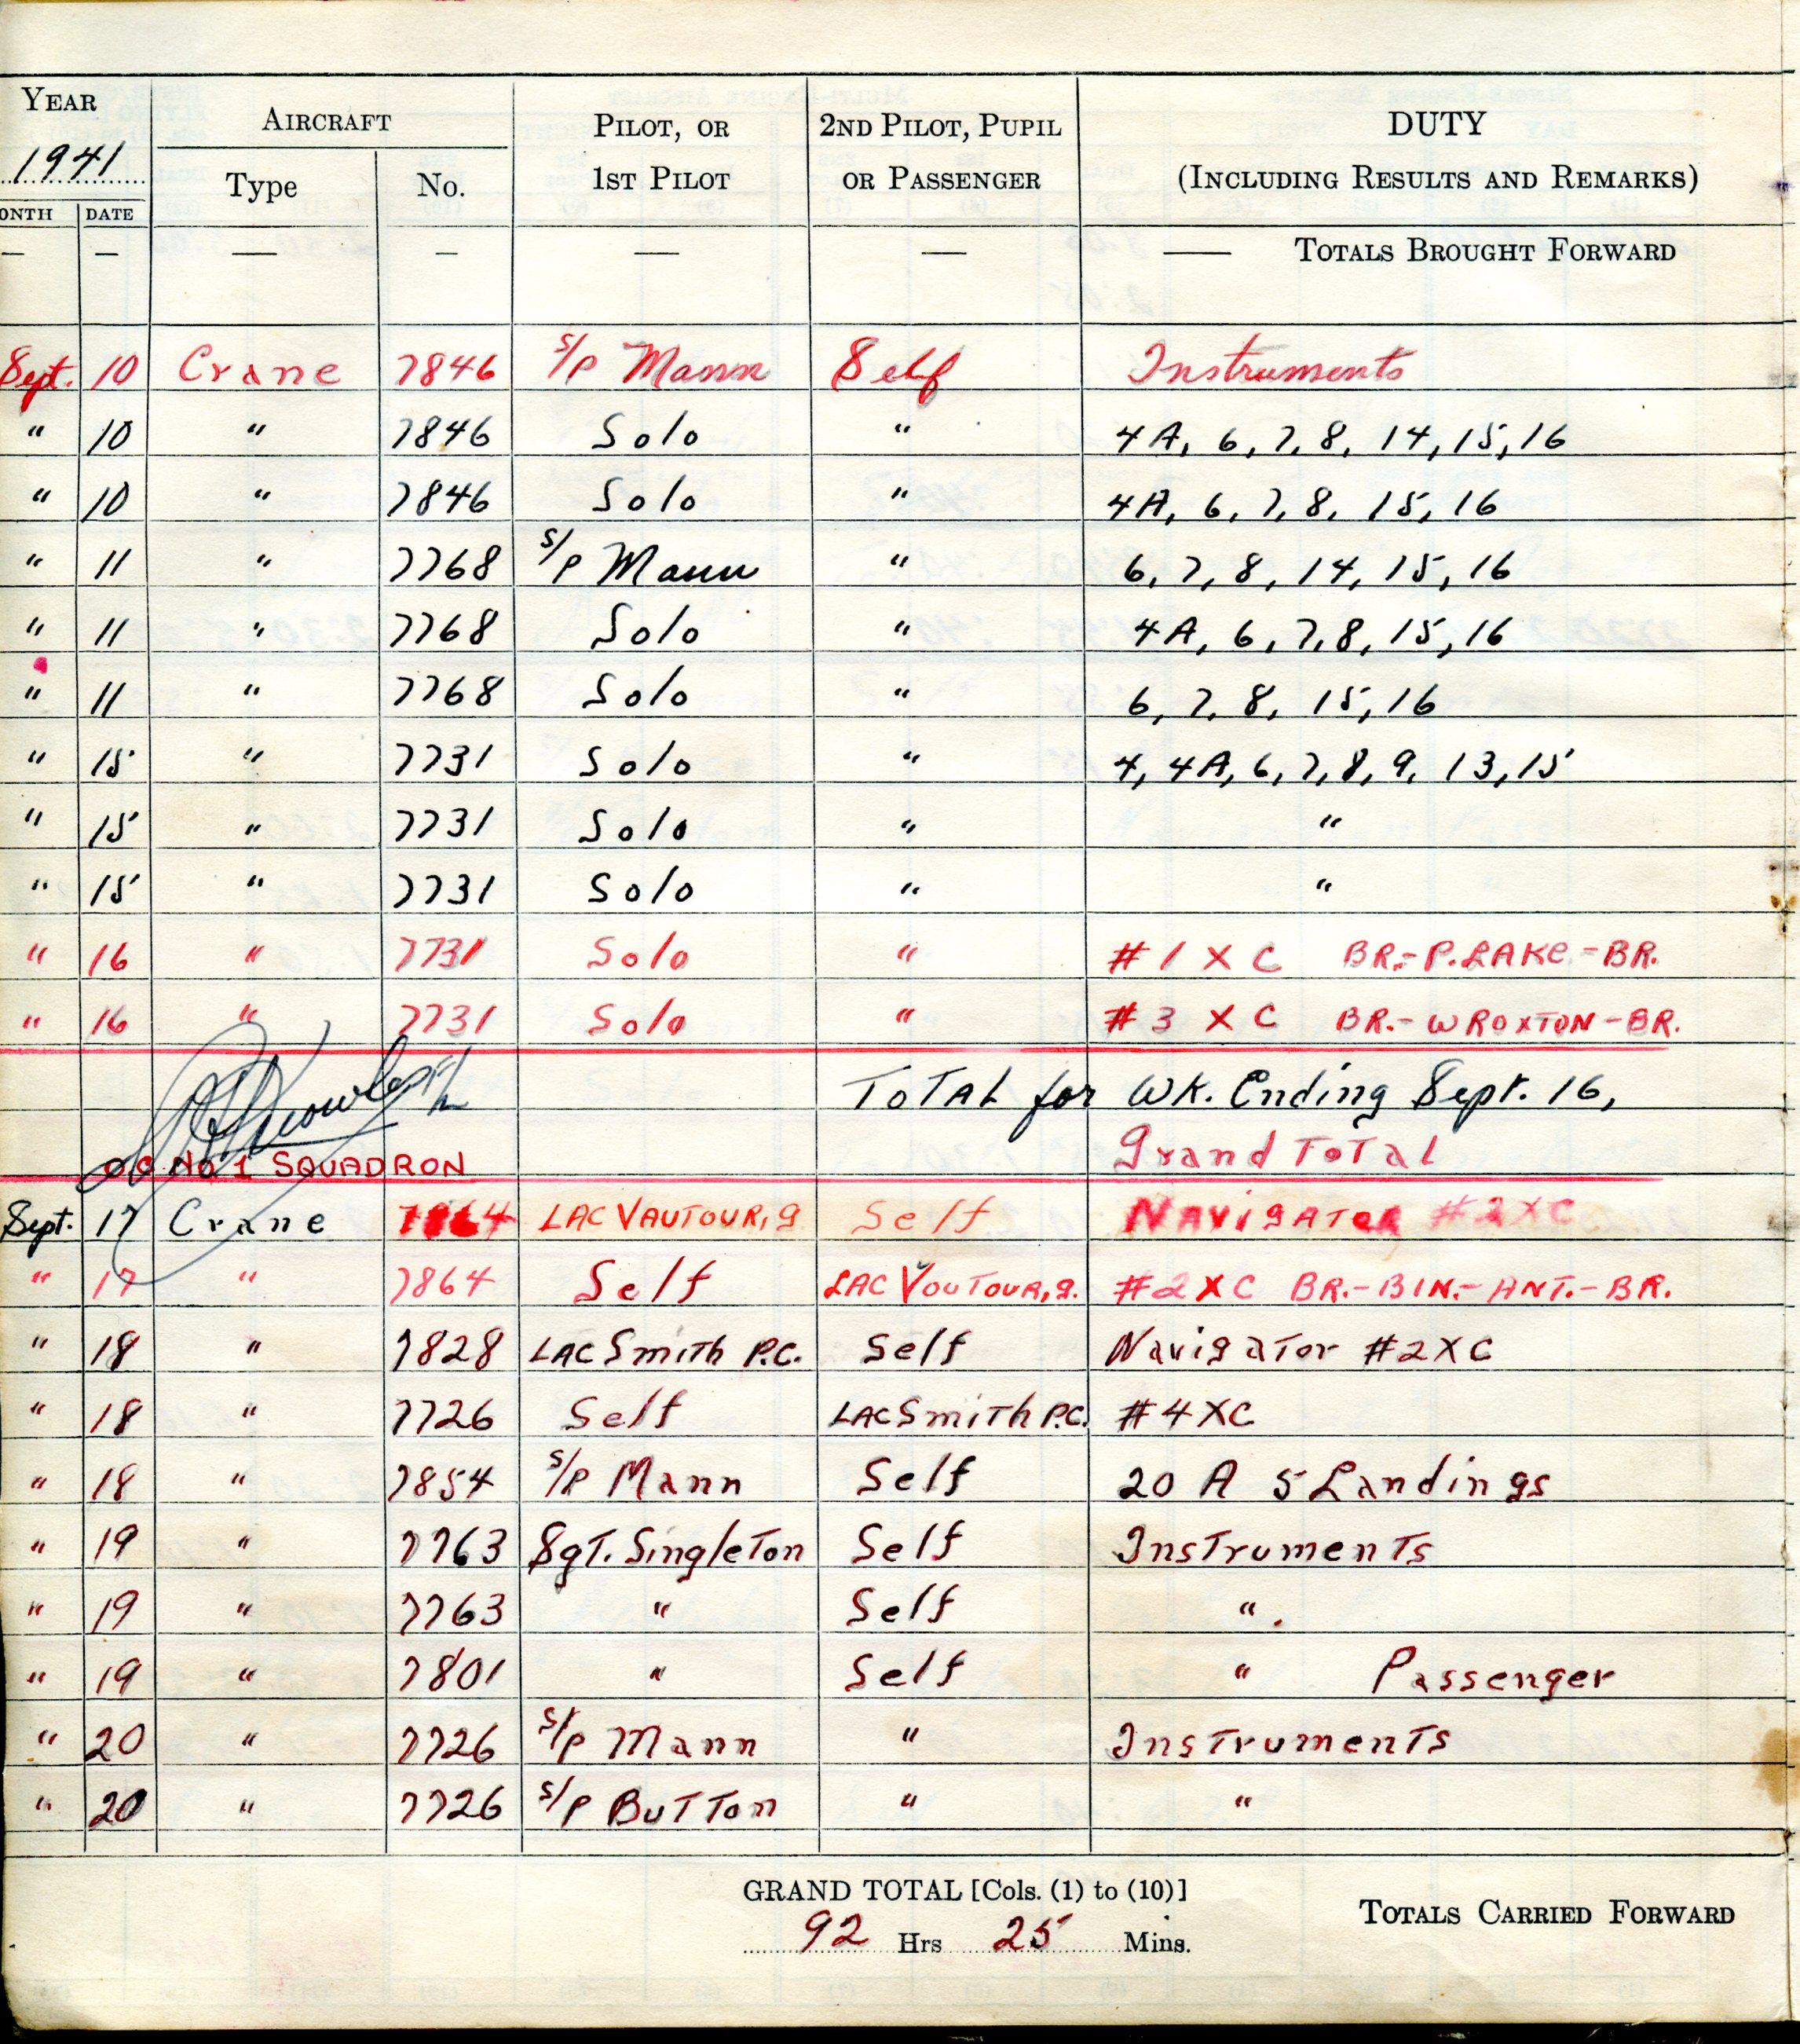 YEAR AIRCRAFT PILOT, OR 2ND PILOT, PUPIL DUTY
1941 Type No. 1ST PILOT OR PASSENGER (INCLUDING RESULTS AND REMARKS)
ONTH DATE
— — — — — — — TOTALS BROUGHT FORWARD
Sept. 10 Crane 7846 S/P Mann Self Instruments
" 10 " 7846 Solo " 4A, 6, 7, 8, 14, 15, 16
" 10 " 7846 Solo " 4A, 6, 7, 8, 15, 16
" 11 " 7768 S/P Mann " 6, 7, 8, 14, 15, 16
" 11 " 7768 Solo " 4A, 6, 7, 8, 15, 16
" 11 " 7768 Solo " 6, 7, 8, 15, 16
" 15 " 7731 Solo " 4, 4A, 6, 7, 8, 9, 13, 15
" 15 " 7731 Solo " "
" 15 " 7731 Solo " "
" 16 " 7731 Solo " # 1 X C BR.-P.LAKE-BR.
" 16 " 7731 Solo " # 3 X C BR.-WROXTON-BR.
TOTAL for WK. Ending Sept. 16,
OC No 1 SQUADRON Grand Total
Sept. 17 Crane 7864 LAC VAUTOUR, g Self NAVIGATOR #2XC
" 17 " 7864 Self LAC VOUTOUR, g. #2XC BR.-BIN.-ANT.-BR.
" 18 " 7828 LAC Smith P.C. Self Navigator #2XC
" 18 " 7726 Self LAC Smith P.C. #4XC
" 18 " 7854 S/P Mann Self 20 A 5 Landings
" 19 " 7763 Sgt. Singleton Self Instruments
" 19 " 7763 " Self ".
" 19 " 7801 " Self " Passenger
" 20 " 7726 S/P Mann " Instruments
" 20 " 7726 S/P Button " "
GRAND TOTAL [Cols. (1) to (10)] TOTALS CARRIED FORWARD
92 Hrs 25 Mins.